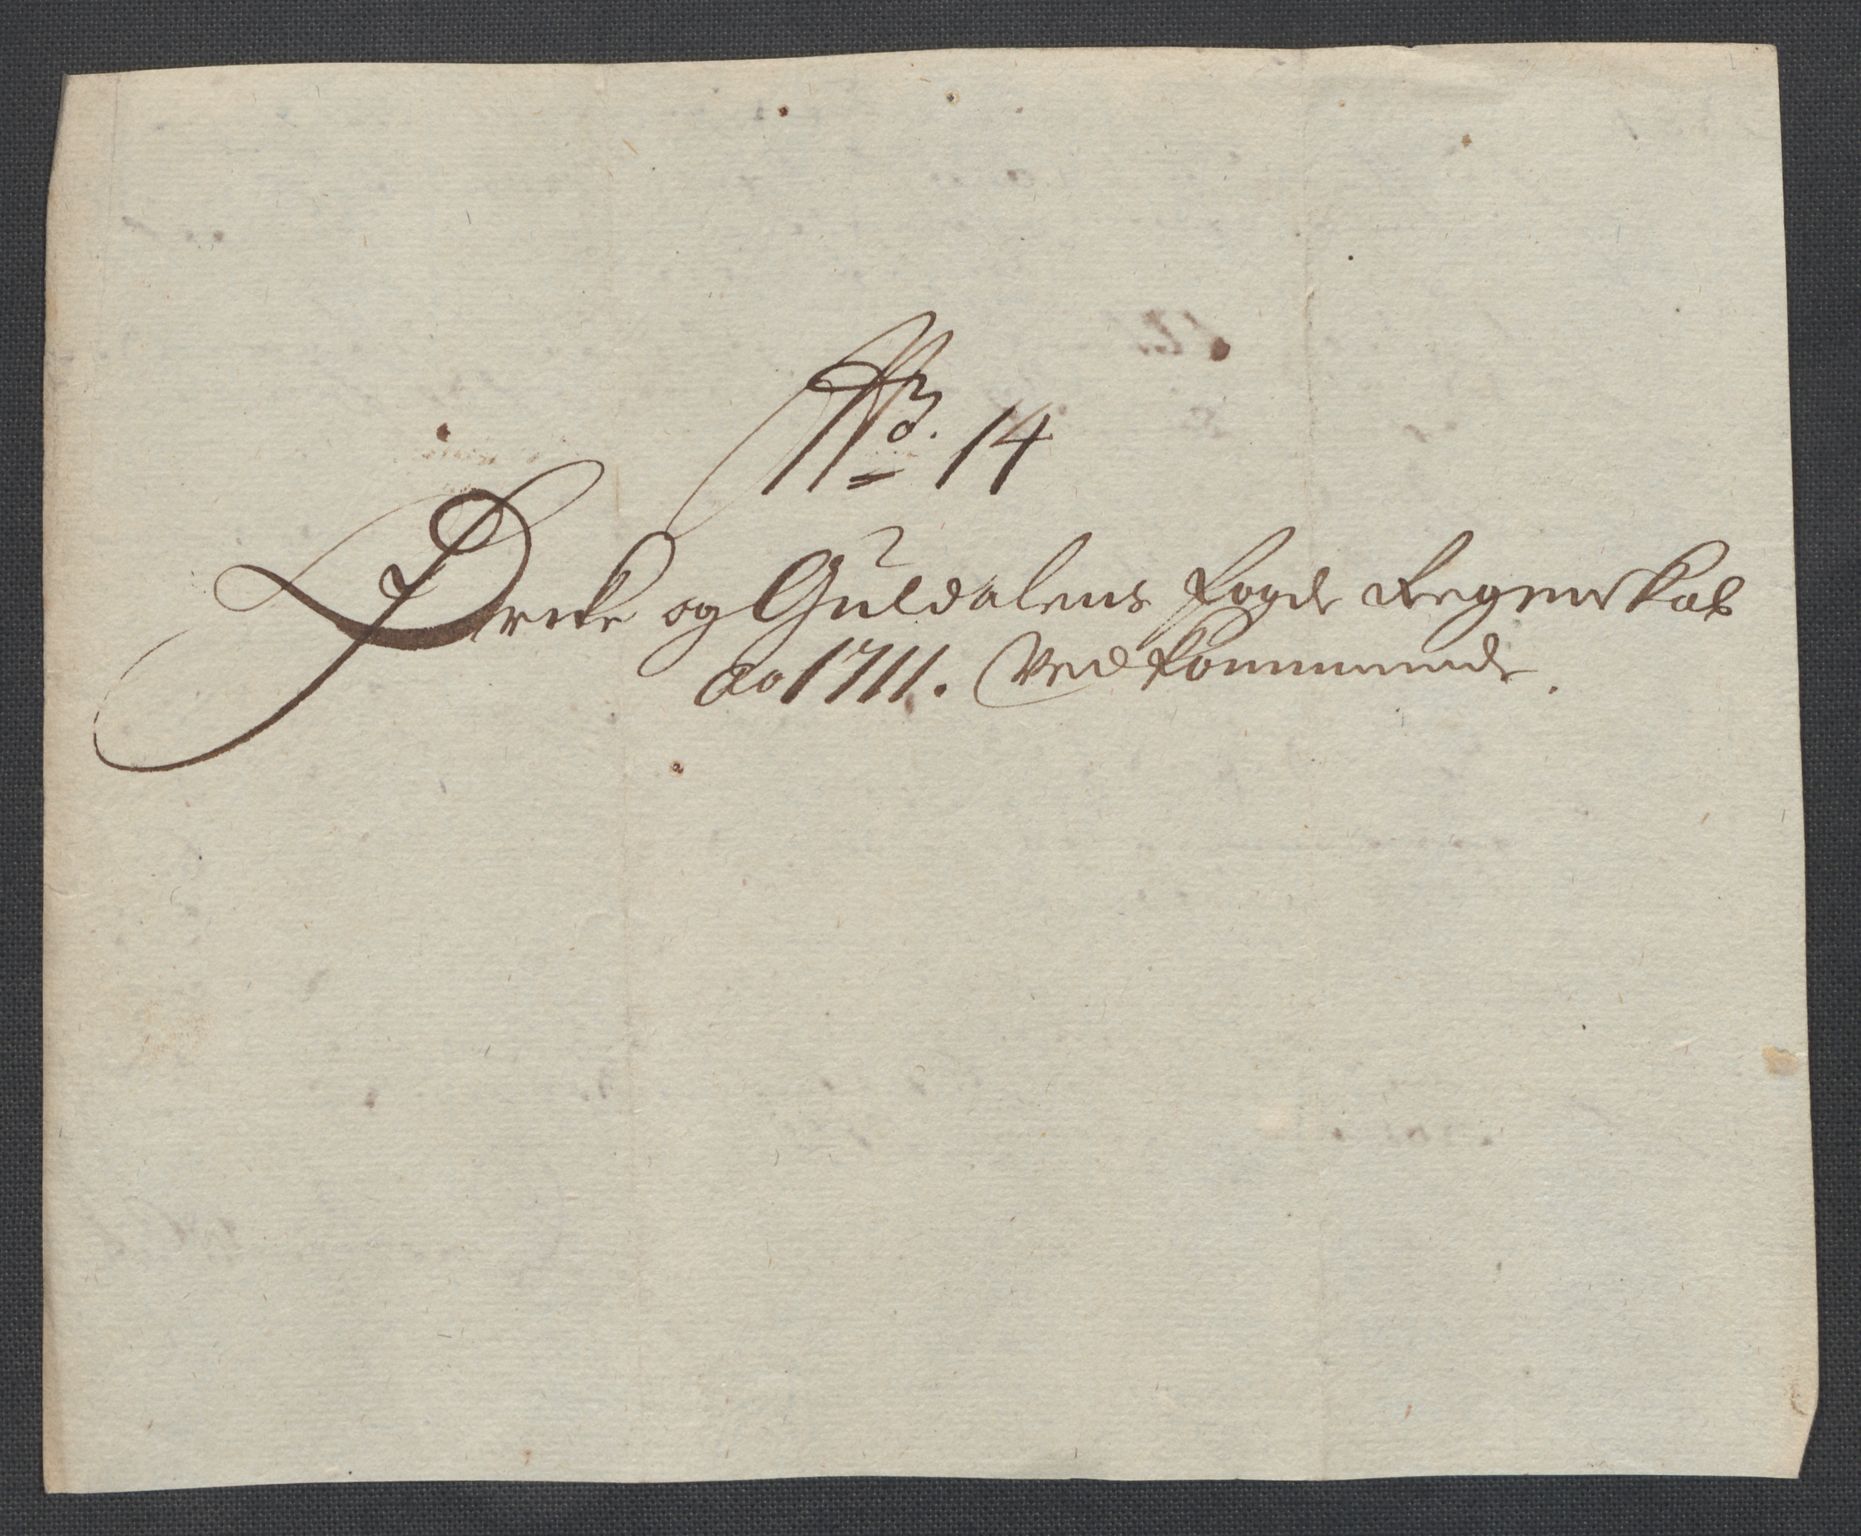 No. 14
Orcke og Guldalens fogde Regenskab
ao 1711. Vedkommende.